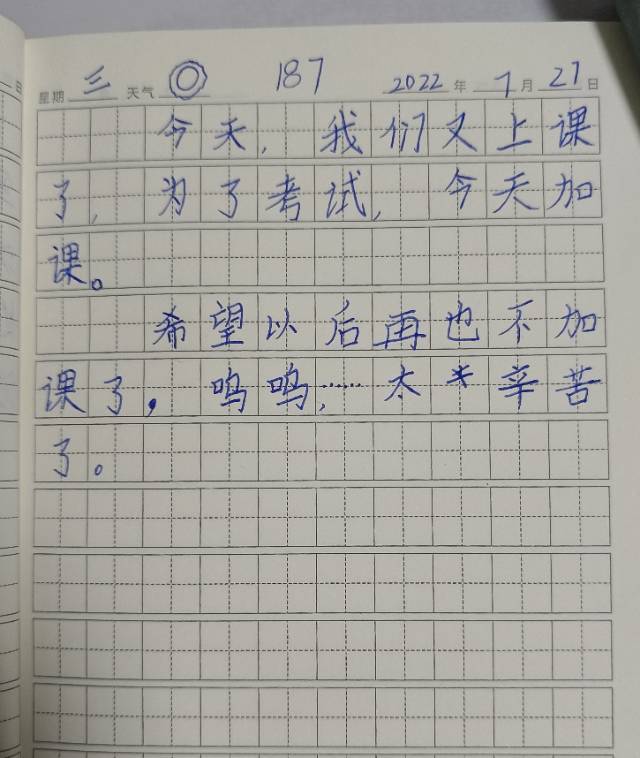 日
星期 三 天气 187 2022 年 7 月 27 日
今天，我们又上课
了，为了考试，今天加
课。
希望以后再也不加
课了，呜呜……太*辛苦
了。